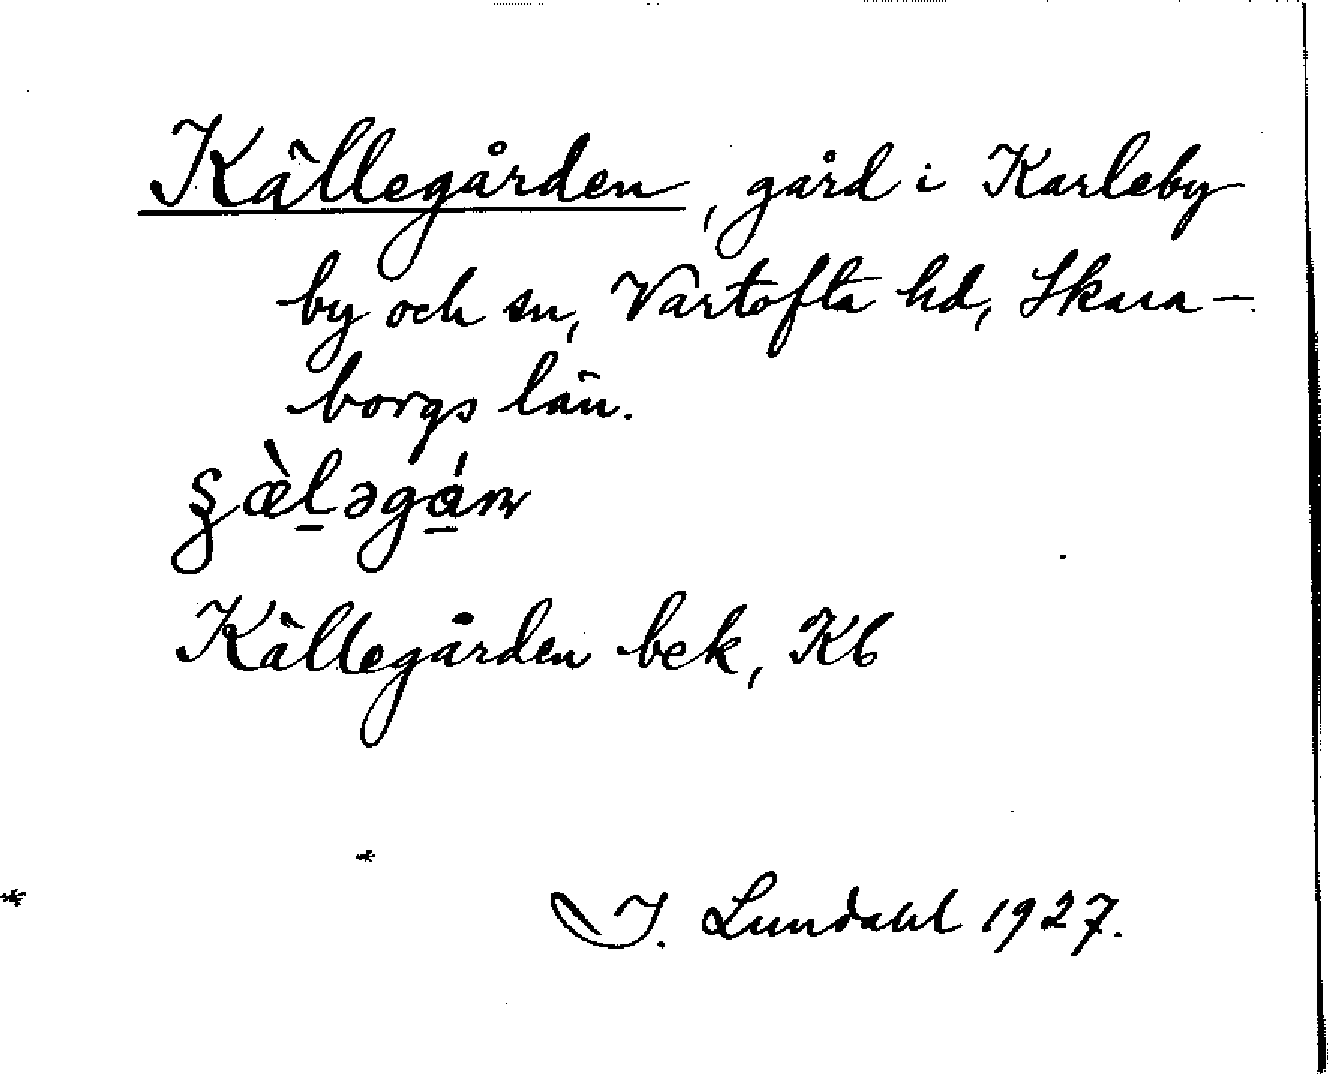 Källegården, gård i Karleby
by och sn, Vartofta hd, Skara-
borgs län.
Källegården bek, Kb
I. Lundahl 1927.